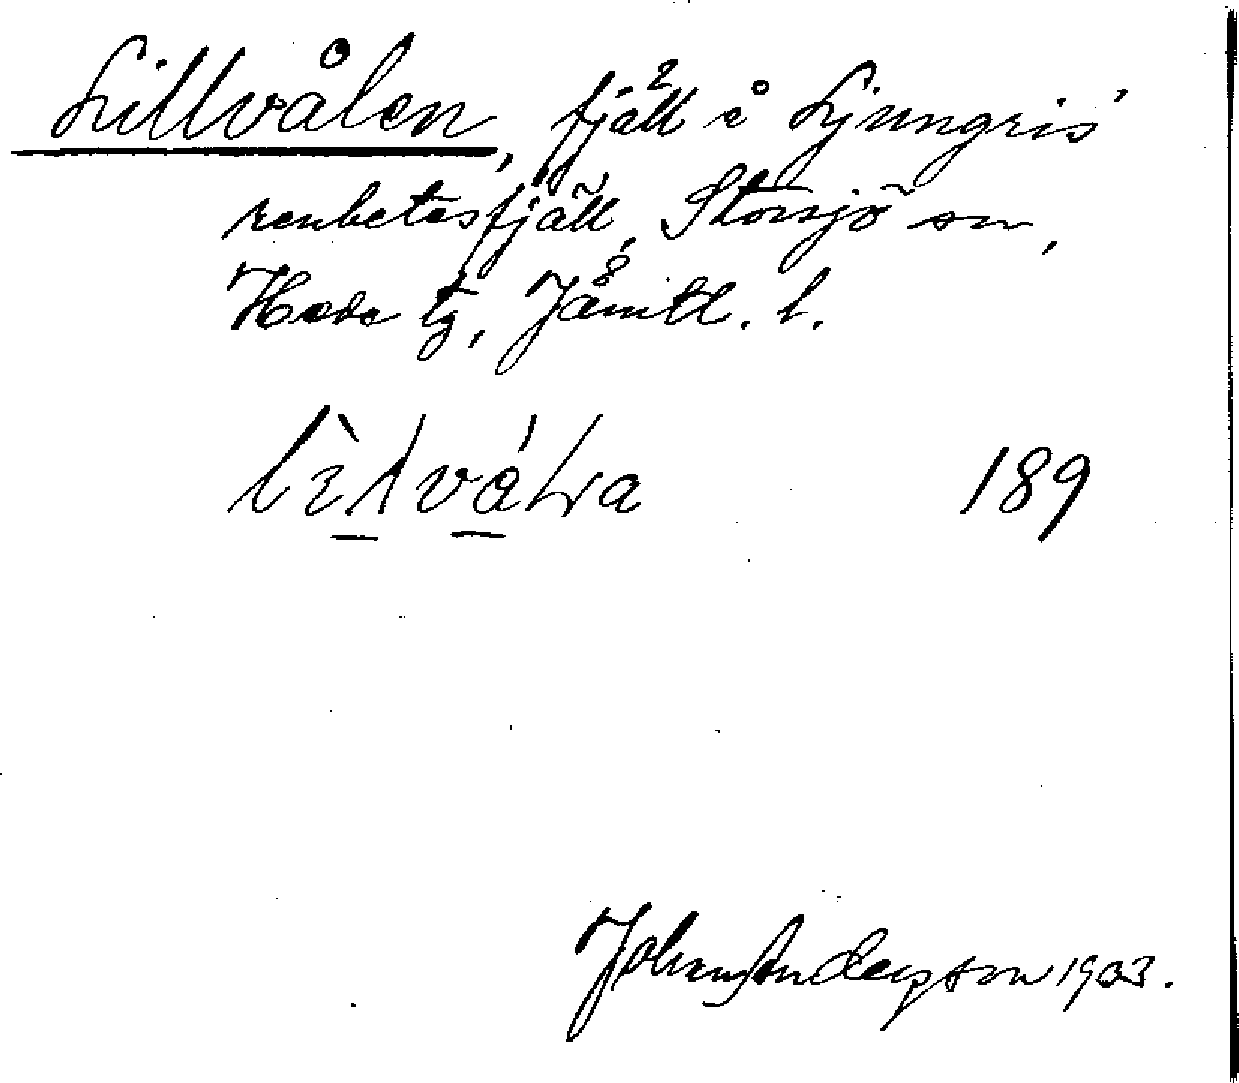 Lillvålen, fjäll å Ljungris'
renbetesfjäll, Storsjö sn,
Heds tg, Jämtl. l.
189
Johan Anderson 1903.